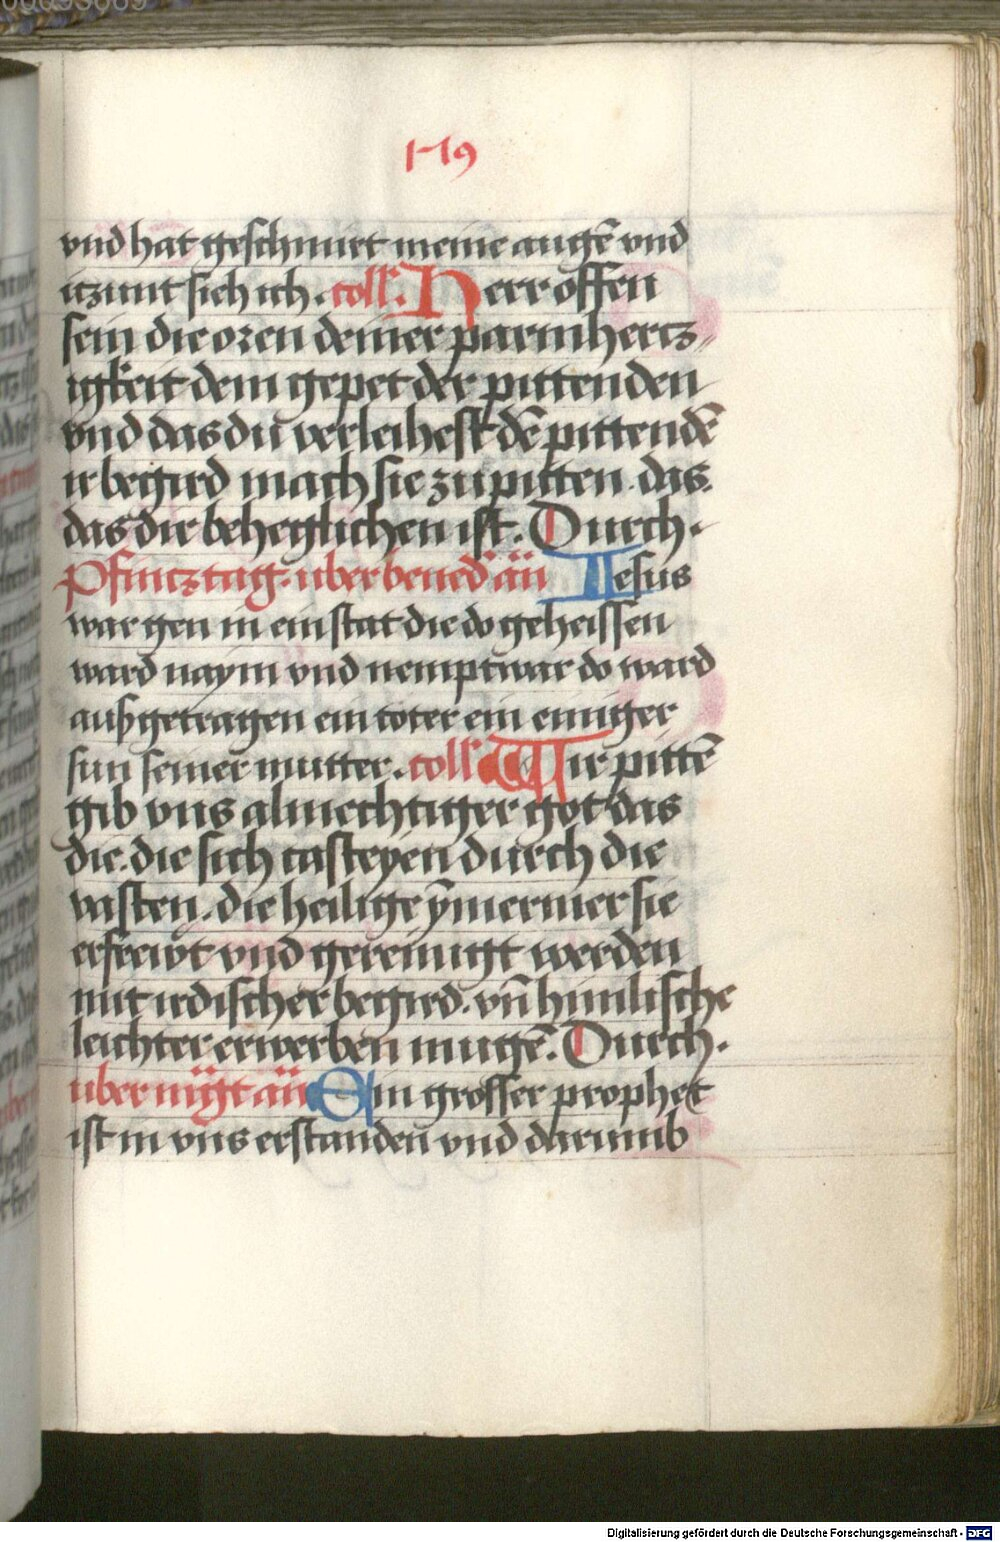 119
vnd hat geschmirt meine augē vnd
itzunt sich ich . coll . Herr offen
sein die oren deiner parmhertz⸗
igkeit dem gepet der pittenden
vnd das du verleihest dē pittendē
ir begird mach sie zu pitten . das
das dir beheglichen ist . Durch .
Pfincztag . uber bened̄ āū Jesus
war gen in ein stat die do geheissen
ward naym vnd nempt war do ward
außgetragen ein toter ein einiger
sun seiner mutter . coll Wir pittē
gib vns almechtiger got das
die . die sich casteyen durch die
vasten . die heilige ȳmermer sie
erfrewt vnd gereinigt werden
mit irdischer begird . vn̄ himlische
leichter erwerben mugē . Durch .
uber mg̅t āū Ein grosser prophet
ist in vns erstanden vnd darumb
Digitalisierung gefördert durch die Deutsche Forschungsgemeinschaft - DFG